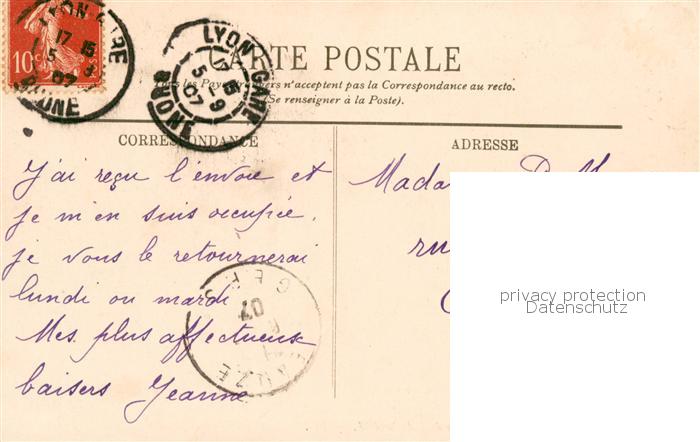 10c
LYON GARE
17 15
5 - 9
07
RHONE
CARTE POSTALE
Tous les Pays étrangers n'acceptent pas la Correspondance au recto.
(Se renseigner à la Poste).
CORRESPONDANCE
J'ai reçu l'envoie et
je m'en suis occupée,
je vous le retournerai
lundi ou mardi
Mes plus affectueux
baisers Jeanne
07
ADRESSE
Mada
ru
privacy protection
Datenschutz